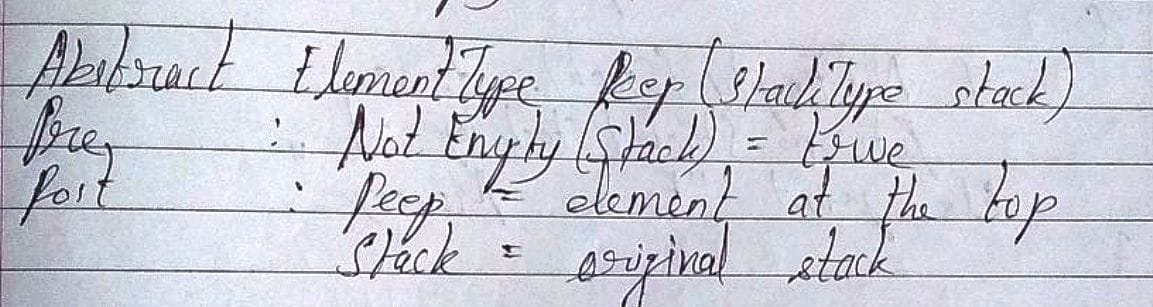 Abstract ElementType Peep (StackType stack)
Pre : Not Empty (Stack) = true
Post : Peep = element at the top
Stack = original stack